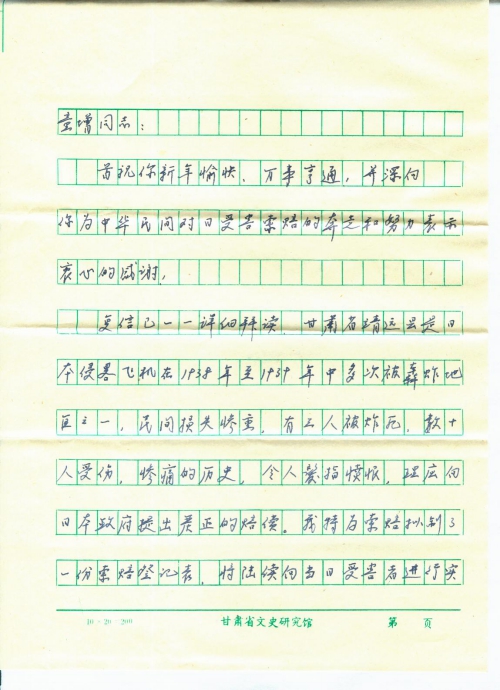 童增同志：
首祝你新年愉快，万事亨通，并深向
你为中华民间对日受害索赔的奔走和努力表示
衷心的感谢，
复信已一一详细拜读，甘肃省靖远县是日
本侵略飞机在1938年至1939年中多次被轰炸地
区之一，民间损失惨重，有三人被炸死，数十
人受伤，惨痛的历史，令人发指愤恨，理应向
日本政府提出严正的赔偿。我特为索赔拟制了
一份索赔登记表，将陆续向当日受害者进行实
10×20=200 甘肃省文史研究馆 第 页